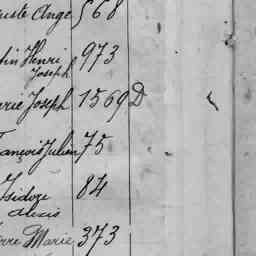 uste Ange 568
tin Henri 973
Joseph
arie Joseph 1569 D
rançois Julien 75
Isidore 84
Alexis
erre Marie 373